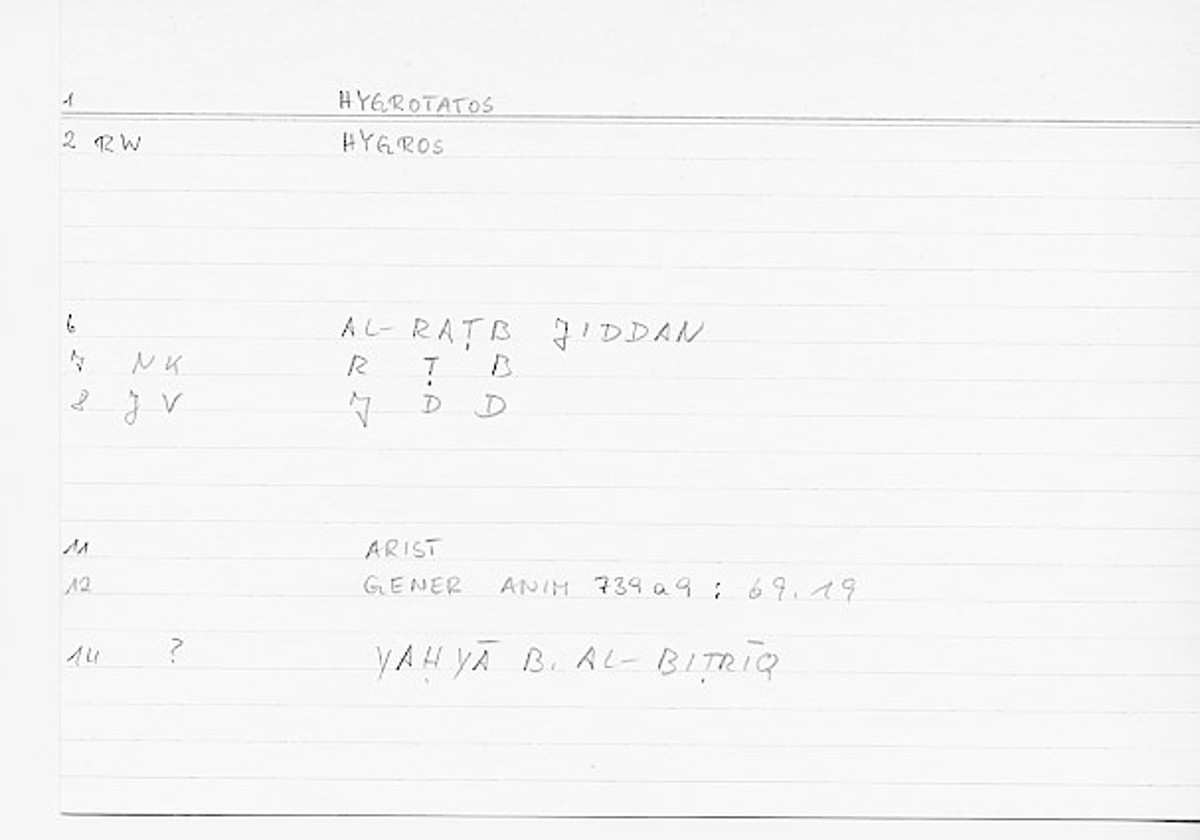 1 HYGROTATOS
2 RW HYGROS
6 AL-RAṬB JIDDAN
7 NK R Ṭ B
8 JV J D D
11 ARIST
12 GENER ANIM 739a9 : 69.19
14 ? YAḤYĀ B. AL-BIṬRĪQ